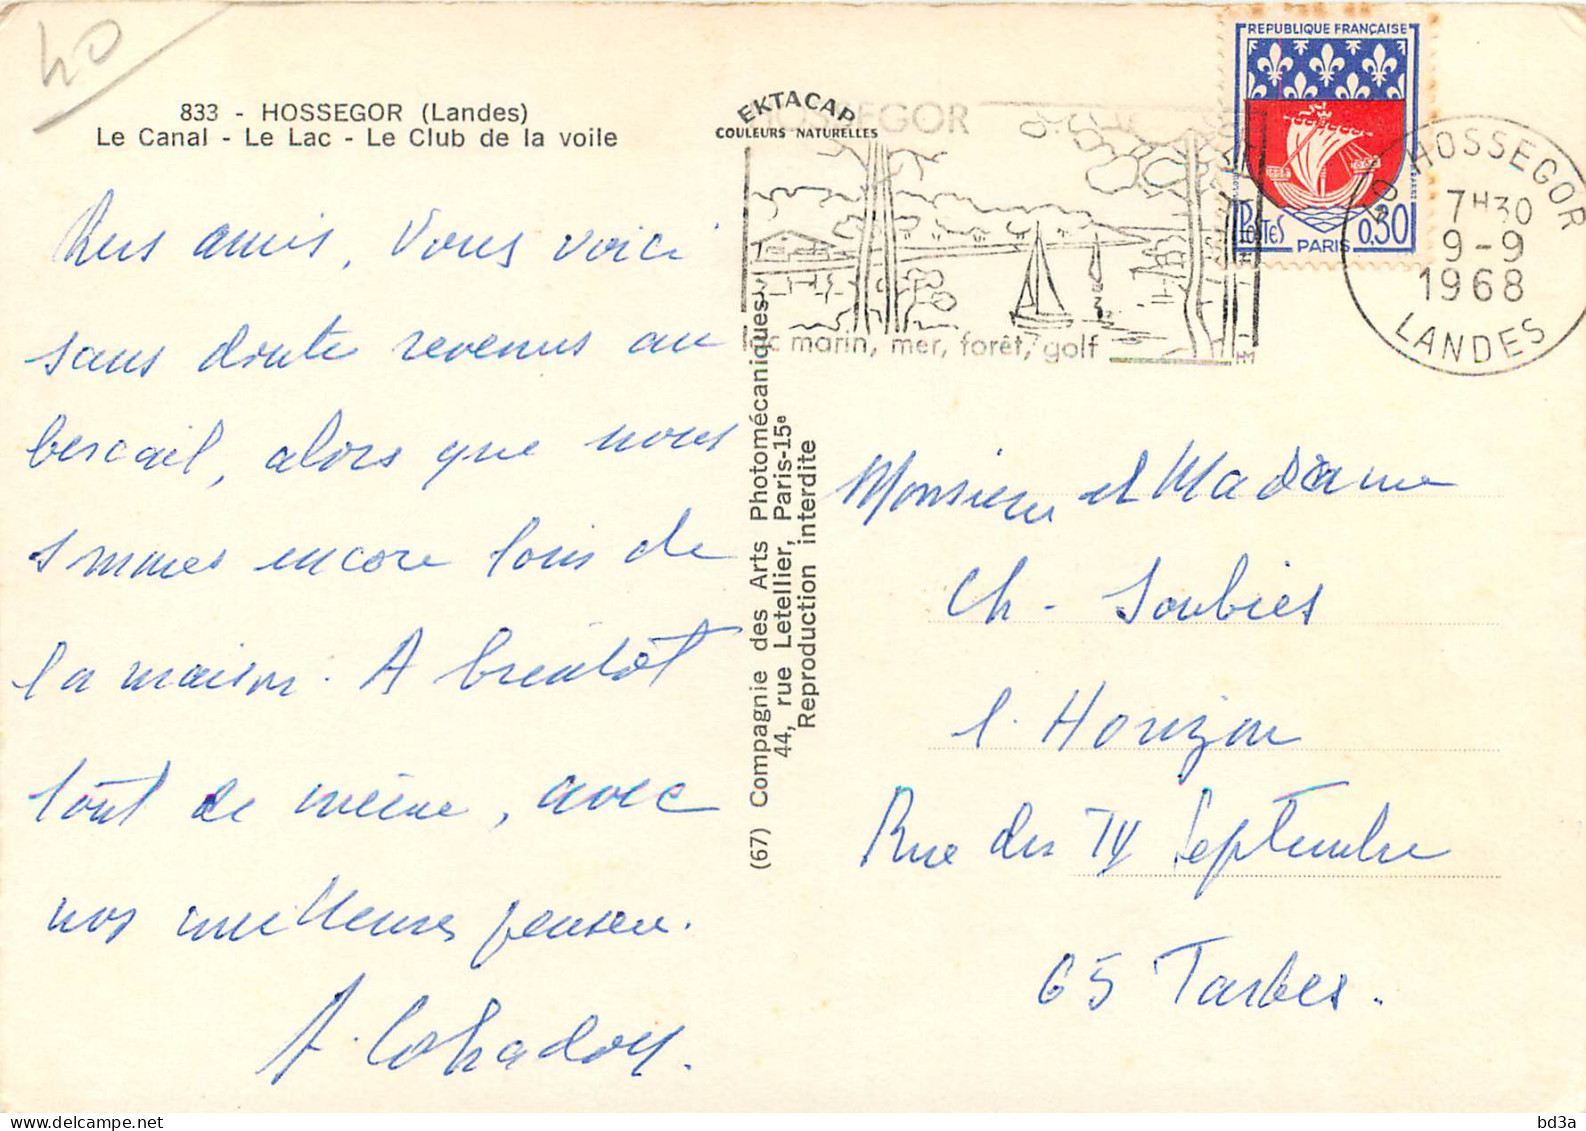 40
833 - HOSSEGOR (Landes)
Le Canal - Le Lac - Le Club de la voile
EKTACAP
COULEURS NATURELLES
HOSSEGOR
lac marin, mer, forêt, golf
HM
REPUBLIQUE FRANÇAISE
POSTES
PARIS
0,30
40 HOSSEGOR
7H30
9-9
1968
LANDES
amis, Vous voici
sans doute revenus au
bercail, alors que nous
sommes encore loin de
la maison. A bientôt
tout de même, avec
nos meilleures pensées.
(67) Compagnie des Arts Photomécaniques
44, rue Letellier, Paris-15e
Reproduction interdite
Monsieur et Madame
Ch. Soubies
l'Horizon
Rue du IV Septembre
65 Tarbes.
bd3a